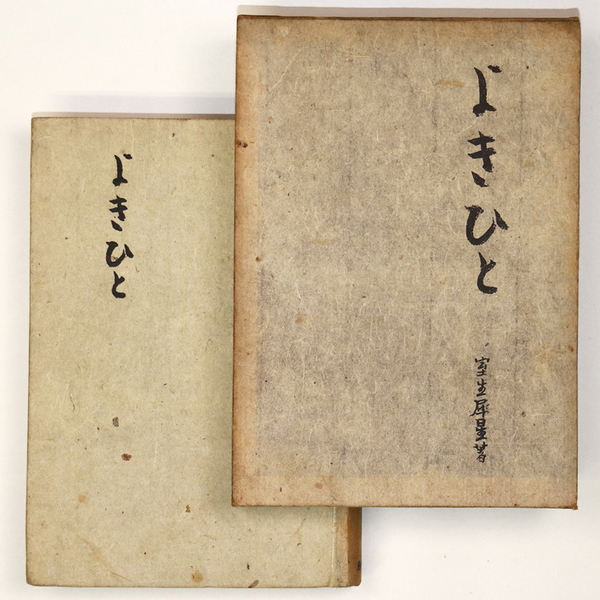 よきひと
室生犀星著
よきひと